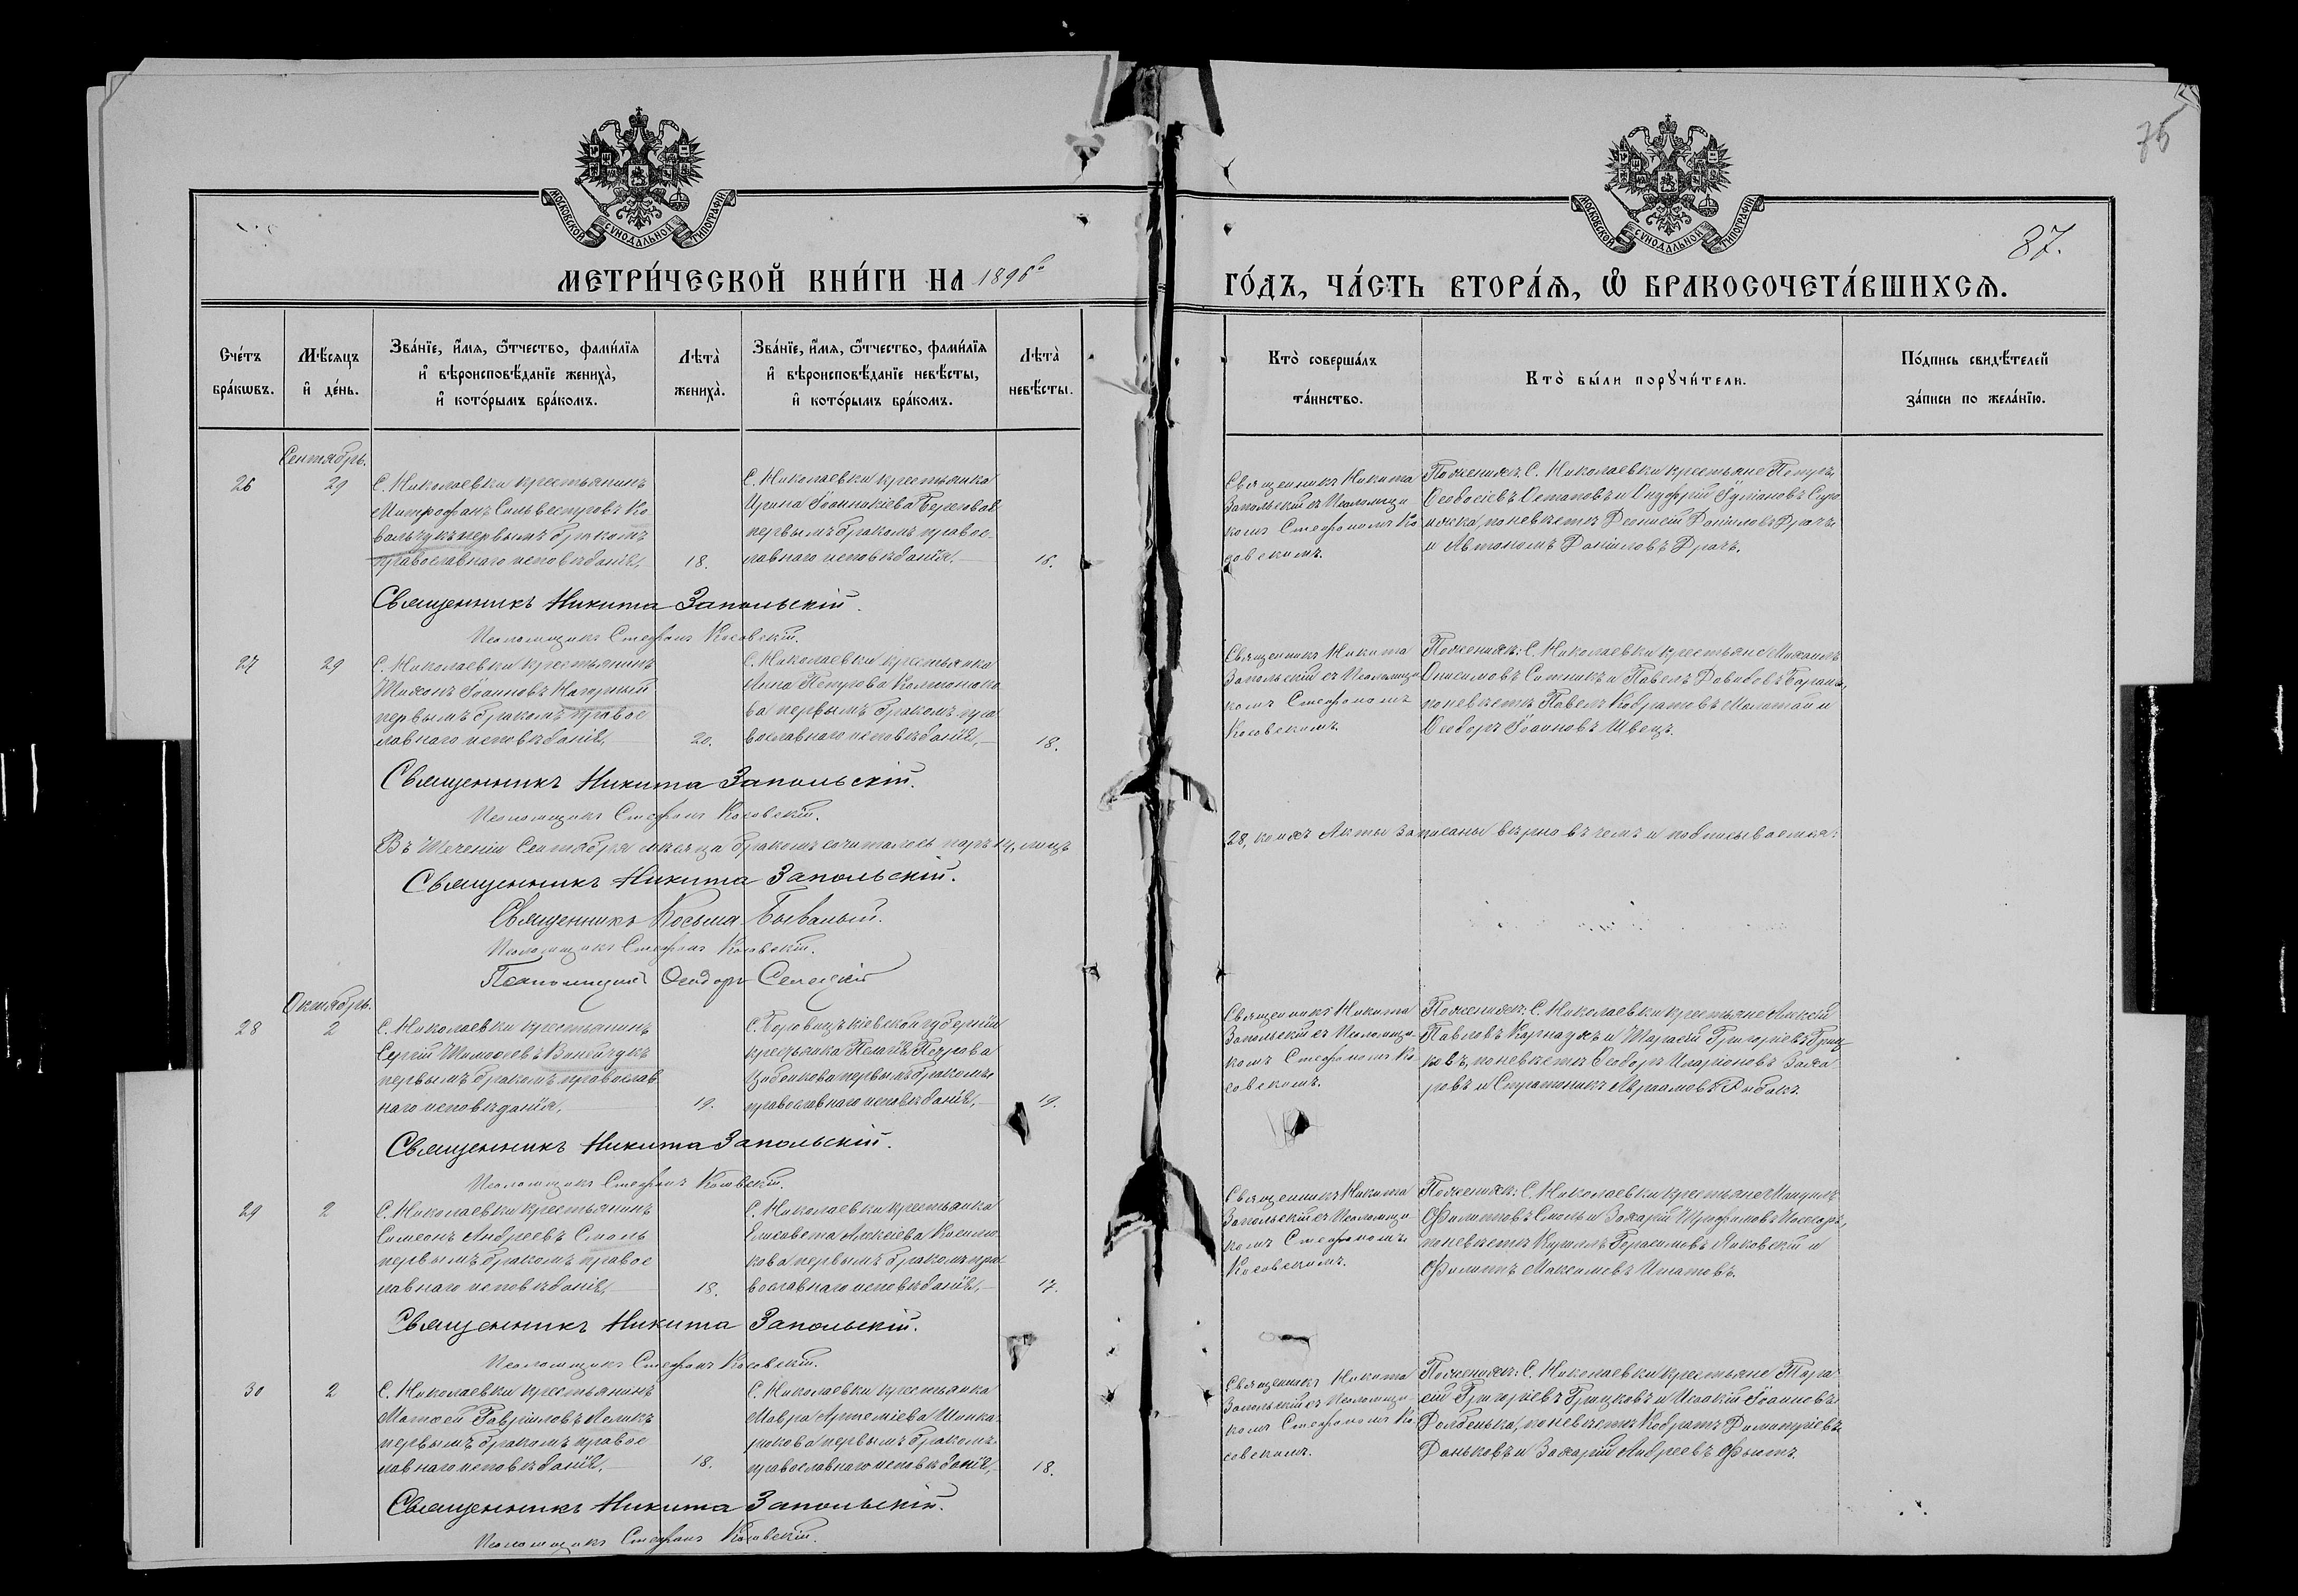 75
МОСКОВСКОЙ СѴНОДАЛЬНОЙ ТИПОГРАФІИ
МОСКОВСКОЙ СѴНОДАЛЬНОЙ ТИПОГРАФІИ
87.
МЕТРИ́ЧЕСКОЙ КНИ́ГИ НА 1896 го
ГО́ДЪ, ЧА́СТЬ ВТОРА́Ѧ, Ѽ БРАКОСОЧЕТА́ВШИХСѦ.
Сче́тъ бра́кѡвъ.
Мѣ́сѧцъ и҆ де́нь.
Зва́нїе, и҆́мѧ, ѻ҆́тчество, фами́лїѧ
и҆ вѣроисповѣ́данїе жениха̀,
и҆ кото́рымъ бра́комъ.
Лѣта̀ жениха̀.
Зва́нїе, и҆́мѧ, ѻ҆́тчество, фами́лїѧ
и҆ вѣроисповѣ́данїе невѣ́сты,
и҆ кото́рымъ бра́комъ.
Лѣта̀ невѣ́сты.
Кто̀ соверша́лъ
та́инство.
Кто̀ бы́ли порꙋчи́тели.
По́дпись свидѣ́телей
за́писи по жела́нїю.
Сентябрь.
26 29
С. Николаевки крестьянинъ
Митрофанъ Сильвестровъ Ко
вальчукъ первымъ бракомъ
православнаго исповѣданія,
18.
С. Николаевки крестьянка
Ирина Іоанникіева Береговая
первымъ бракомъ правос-
лавнаго исповѣданія,
18.
Священникъ Никита
Запольскій съ Псаломщи
комъ Стефаномъ Ко
совскимъ.
По женихѣ: С. Николаевки крестьяне Петръ
Ѳеодосіевъ Остаповъ и Онуфрій Іуліановъ
по невѣстѣ Даніиловъ Драчъ
и Автономъ Даніиловъ Драчъ.
Священникъ Никита Запольскій.
Псаломщикъ Стефанъ Косовскій.
27 29
С. Николаевки крестьянинъ
Тихонъ Іоанновъ Нагорный
первымъ бракомъ правос
лавнаго исповѣданія,
20.
С. Николаевки крестьянка
Анна Петрова
ва первымъ бракомъ пра
вославнаго исповѣданія,
18.
Священникъ Никита
Запольскій съ Псаломщи
комъ Стефаномъ
Косовскимъ.
По женихѣ: С. Николаевки крестьяне Михаилъ
Онисимовъ Ситникъ и Павелъ Давидовъ Баранъ,
по невѣстѣ Павелъ Кодратовъ и
Ѳеодоръ Іоанновъ Швецъ.
Священникъ Никита Запольскій.
Псаломщикъ Стефанъ Косовскій.
Въ теченіи Сентября мѣсяца бракомъ сочиталось паръ 14, лицъ
28, коихъ Акты записаны вѣрно въ чемъ и подписываемся:
Священникъ Никита Запольскій.
Священникъ Косьма Бывалый.
Псаломщикъ Стефанъ Косовскій.
Псаломщикъ Ѳеодоръ
Октябрь.
28 2
С. Николаевки крестьянинъ
Сергій Тимоѳеевъ Винничукъ
первымъ бракомъ православ
наго исповѣданія,
19.
С. Кіевской губерніи
крестьянка Петрова
первымъ бракомъ
православнаго исповѣданія,
19.
Священникъ Никита
Запольскій съ Псаломщи
комъ Стефаномъ Ко
совскимъ.
По женихѣ: С. Николаевки крестьяне Алексій
Павловъ Карнаухъ и Тарасій Григоріевъ Гриц-
ковъ, по невѣстѣ Ѳеодоръ Иларіоновъ Заха
ровъ и Стратоникъ Авраамовъ Рыбакъ.
Священникъ Никита Запольскій.
Псаломщикъ Стефанъ Косовскій.
29 2
С. Николаевки крестьянинъ
Симеонъ Андреевъ Смоль
первымъ бракомъ правос
лавнаго исповѣданія,
18.
С. Николаевки крестьянка
Елисавета Алексіева
кова первымъ бракомъ пра
вославнаго исповѣданія,
17.
Священникъ Никита
Запольскій съ Псаломщи
комъ Стефаномъ
Косовскимъ.
По женихѣ: С. Николаевки крестьяне
Филиповъ Смоль и Захарій Трофимовъ
по невѣстѣ Кириллъ Герасимовъ Яковскій и
Филиппъ Максимовъ Игнатовъ.
Священникъ Никита Запольскій.
Псаломщикъ Стефанъ Косовскій.
30 2
С. Николаевки крестьянинъ
Матѳей Гавріиловъ Леликъ
первымъ бракомъ правос
лавнаго исповѣданія,
18.
С. Николаевки крестьянка
Мавра Артеміева
первымъ бракомъ
православнаго исповѣданія,
18.
Священникъ Никита
Запольскій съ Псаломщи
комъ Стефаномъ Ко
совскимъ.
По женихѣ: С. Николаевки крестьяне Тара
сій Григоріевъ Грицковъ и Исаакій Іоанновъ
по невѣстѣ Кодратъ Димитріевъ
Даньковъ и Захарій Андреевъ
Священникъ Никита Запольскій.
Псаломщикъ Стефанъ Косовскій.